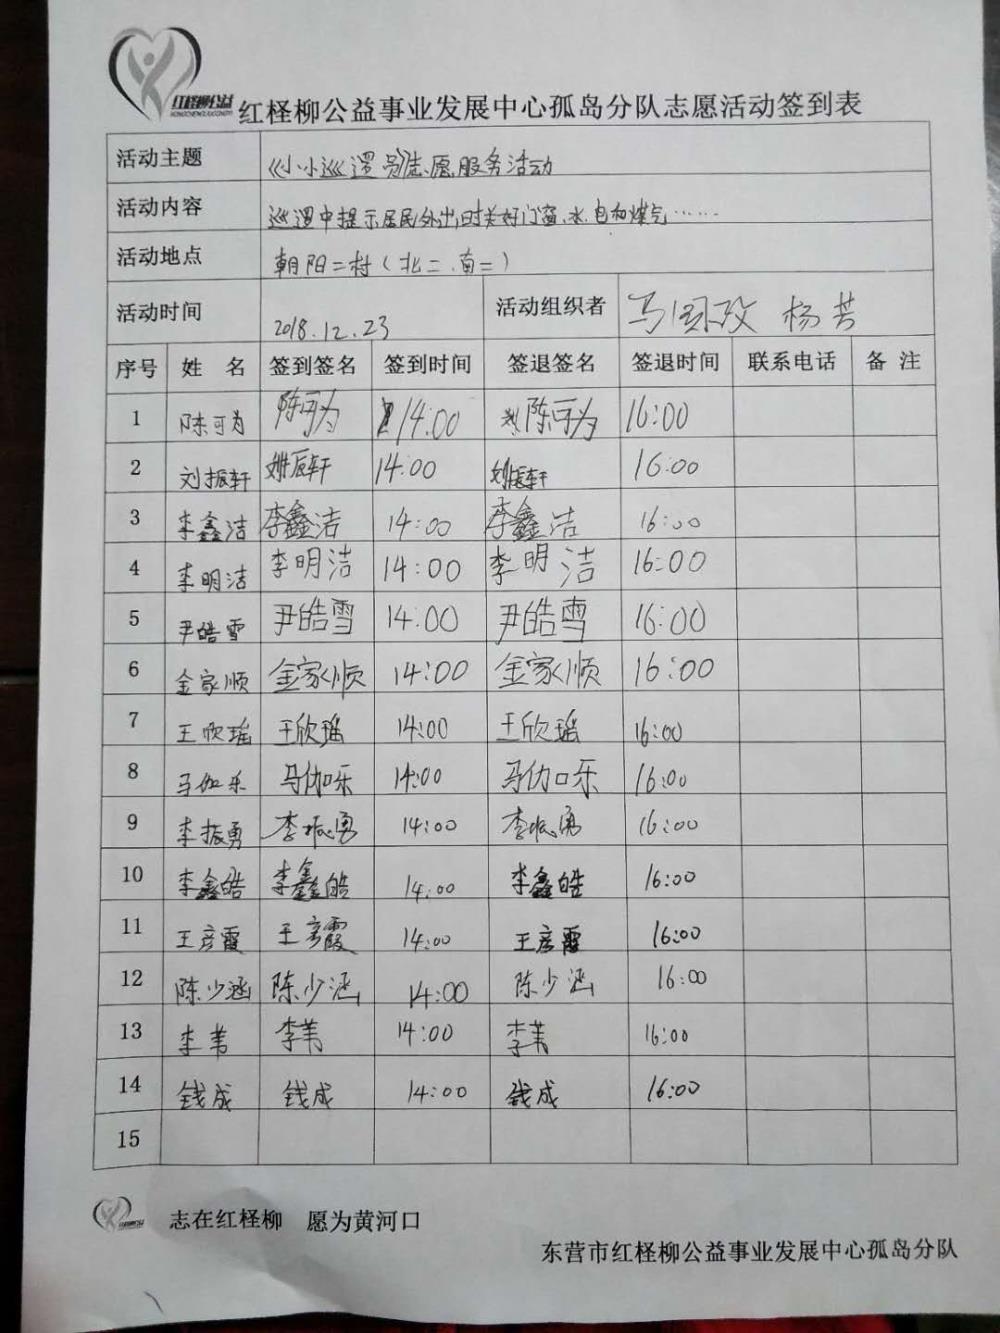 红柽柳公益
红柽柳公益事业发展中心孤岛分队志愿活动签到表
活动主题 《小小巡逻员》志愿服务活动
活动内容 巡逻中提示居民外出时关好门窗、水、电和煤气……
活动地点 朝阳二村（北二、南二）
活动时间 2018.12.23 活动组织者 杨芳
序号 姓 名 签到签名 签到时间 签退签名 签退时间 联系电话 备 注
1 陈可为 陈可为 14:00 陈可为 16:00
2 刘振轩 14:00 16:00
3 李鑫洁 李鑫洁 14:00 李鑫洁 16:00
4 李明洁 李明洁 14:00 李明洁 16:00
5 尹皓雪 尹皓雪 14:00 尹皓雪 16:00
6 金家顺 金家顺 14:00 金家顺 16:00
7 王欣瑶 王欣瑶 14:00 王欣瑶 16:00
8 马伽乐 马伽乐 14:00 马伽乐 16:00
9 李振勇 李振勇 14:00 李振勇 16:00
10 李鑫皓 李鑫皓 14:00 李鑫皓 16:00
11 王彦霞 王彦霞 14:00 王彦霞 16:00
12 陈少涵 陈少涵 14:00 陈少涵 16:00
13 李苇 李苇 14:00 李苇 16:00
14 钱成 钱成 14:00 钱成 16:00
15
志在红柽柳 愿为黄河口
东营市红柽柳公益事业发展中心孤岛分队